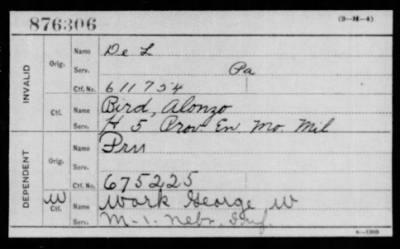 876306
(3—M—4)
INVALID
Orig.
Name De L
Serv. Pa
Ctf. No. 611754
Ctf.
Name Bird, Alonzo
Serv. H 5 Prov En. Mo. Mil
DEPENDENT
Orig.
Name Pru
Serv.
Ctf. No. 675225
W
Ctf.
Name Work George W
Serv. M-1. Nebr. Inf.